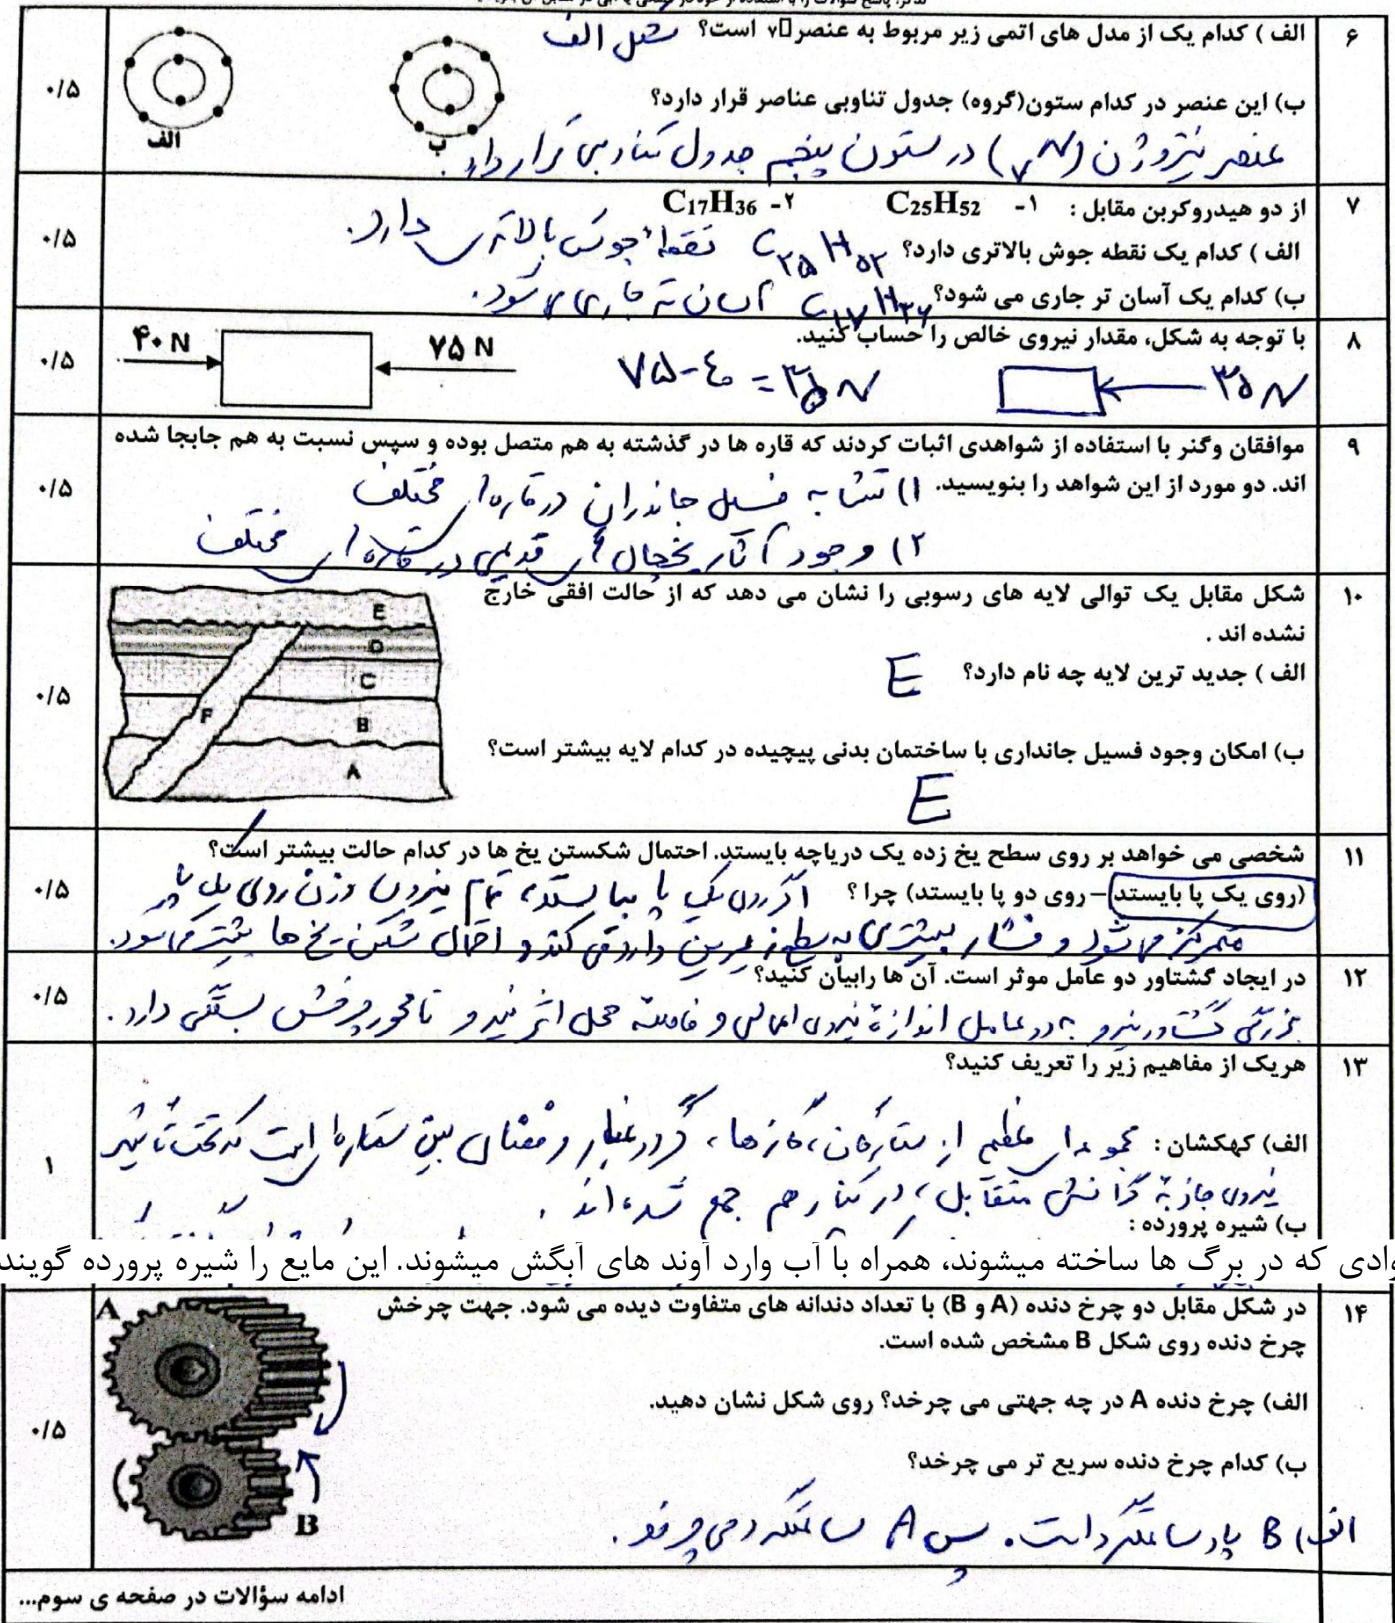 ۶
الف ) کدام یک از مدل های اتمی زیر مربوط به عنصر ۷ است؟ شکل الف
ب) این عنصر در کدام ستون(گروه) جدول تناوبی عناصر قرار دارد؟
۰/۵
الف
ب
عنصر نیتروژن (۷N) در ستون پنجم جدول تناوبی قرار دارد.
۷
از دو هیدروکربن مقابل : ۱- C25H52 ۲- C17H36
الف ) کدام یک نقطه جوش بالاتری دارد؟ C۲۵H۵۲ نقطه جوش بالاتری دارد.
ب) کدام یک آسان تر جاری می شود؟ C۱۷H۳۶ آسان تر جاری می شود.
۰/۵
۸
با توجه به شکل، مقدار نیروی خالص را حساب کنید.
۴۰ N
۷۵ N
۷۵-۴۰ = ۳۵ N
۳۵ N
۰/۵
۹
موافقان وگنر با استفاده از شواهدی اثبات کردند که قاره ها در گذشته به هم متصل بوده و سپس نسبت به هم جابجا شده
اند. دو مورد از این شواهد را بنویسید. ۱) تشابه فسیل جانداران در قاره های مختلف
۲) وجود آثار یخچال های قدیمی در قاره های مختلف
۰/۵
۱۰
شکل مقابل یک توالی لایه های رسوبی را نشان می دهد که از حالت افقی خارج
نشده اند .
الف ) جدید ترین لایه چه نام دارد؟ E
ب) امکان وجود فسیل جانداری با ساختمان بدنی پیچیده در کدام لایه بیشتر است؟
E
E
D
C
F
B
A
۰/۵
۱۱
شخصی می خواهد بر روی سطح یخ زده یک دریاچه بایستد. احتمال شکستن یخ ها در کدام حالت بیشتر است؟
(روی یک پا بایستد – روی دو پا بایستد) چرا ؟ اگر روی یک پا بایستد، تمام نیروی وزن روی یک پا
متمرکز می شود و فشار بیشتری به سطح زیرین وارد می کند و احتمال شکستن یخ ها بیشتر می شود.
۰/۵
۱۲
در ایجاد گشتاور دو عامل موثر است. آن ها رابیان کنید؟
بزرگی گشتاور نیرو به دو عامل اندازۀ نیروی اعمالی و فاصله محل اثر نیرو تا محور چرخش بستگی دارد.
۰/۵
۱۳
هریک از مفاهیم زیر را تعریف کنید؟
الف) کهکشان : مجموعه ای عظیم از ستارگان، گازها، گرد و غبار و فضای بین ستاره ای است که تحت تأثیر
نیروی جاذبۀ گرانش متقابل، در کنار هم جمع شده اند .
ب) شیره پرورده :
وادی که در برگ ها ساخته میشوند، همراه با آب وارد آوند های آبگش میشوند. این مایع را شیره پرورده گویند
۱
۱۴
در شکل مقابل دو چرخ دنده (A و B) با تعداد دندانه های متفاوت دیده می شود. جهت چرخش
چرخ دنده روی شکل B مشخص شده است.
الف) چرخ دنده A در چه جهتی می چرخد؟ روی شکل نشان دهید.
ب) کدام چرخ دنده سریع تر می چرخد؟
الف) B پادساعتگرد است. پس A ساعتگرد می چرخد.
A
B
۰/۵
ادامه سؤالات در صفحه ی سوم...